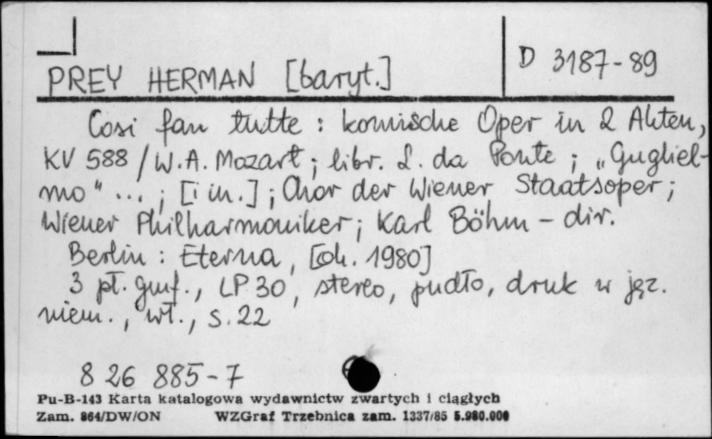 D 3187-89
PREY HERMAN [baryt.]
Cosi fan tutte : komische Oper in 2 Akten,
KV 588 / W. A. Mozart ; libr. L. da Ponte ; „Gugliel-
mo" ... ; [i in.] ; Chor der Wiener Staatsoper ;
Wiener Philharmoniker ; Karl Böhm - dir.
Berlin : Eterna, [ok. 1980]
3 pł. gmf., LP 30, stereo, pudło, druk w jęz.
niem., wł., s. 22
8 26 885-7
Pu-B-143 Karta katalogowa wydawnictw zwartych i ciągłych
Zam. 864/DW/ON WZGraf Trzebnica zam. 1337/85 5.980.000